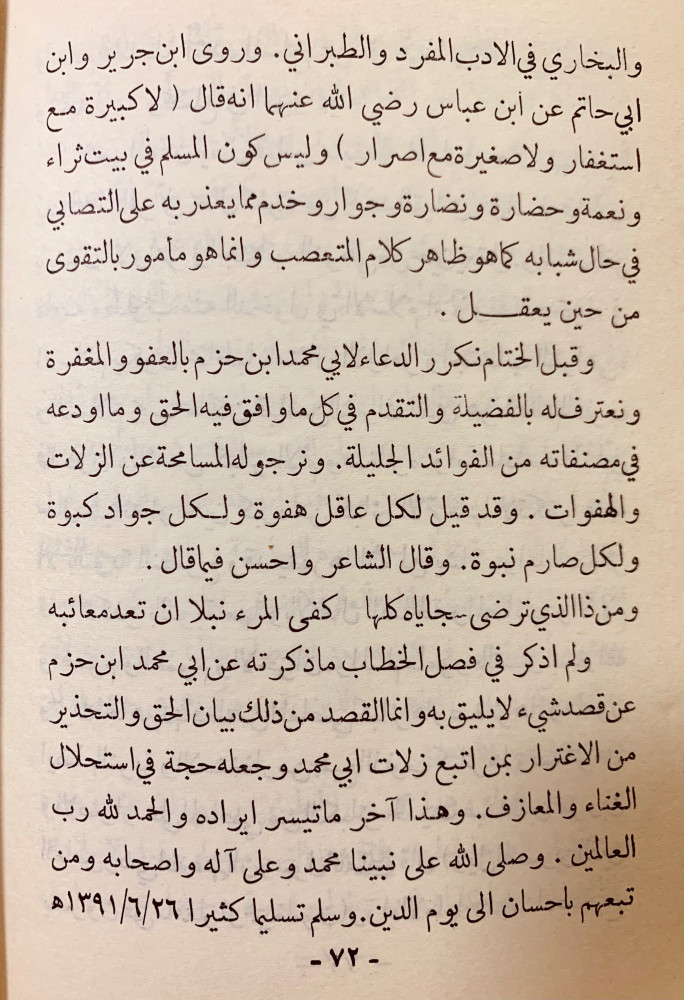 والبخاري في الادب المفرد والطبراني. وروى ابن جرير وابن
ابي حاتم عن ابن عباس رضي الله عنهما انه قال ( لا كبيرة مع
استغفار ولا صغيرة مع اصرار ) وليس كون المسلم في بيت ثراء
ونعمة وحضارة ونضارة وجوار وخدم مما يعذر به على التصابي
في حال شبابه كما هو ظاهر كلام المتعصب وانما هو مأمور بالتقوى
من حين يعقــل .
وقبل الختام نكرر الدعاء لابي محمد ابن حزم بالعفو والمغفرة
ونعترف له بالفضيلة والتقدم في كل ما وافق فيه الحق وما اودعه
في مصنفاته من الفوائد الجليلة. ونرجو له المسامحة عن الزلات
والهفوات . وقد قيل لكل عاقل هفوة ولكل جواد كبوة
ولكل صارم نبوة. وقال الشاعر واحسن فيما قال .
ومن ذا الذي ترضى سجاياه كلها كفى المرء نبلا ان تعد معائبه
ولم اذكر في فصل الخطاب ما ذكرته عن ابي محمد ابن حزم
عن قصد شيء لا يليق به وانما القصد من ذلك بيان الحق والتحذير
من الاغترار بمن اتبع زلات ابي محمد وجعله حجة في استحلال
الغناء والمعازف. وهذا آخر ما تيسر ايراده والحمد لله رب
العالمين . وصلى الله على نبينا محمد وعلى آله واصحابه ومن
تبعهم باحسان الى يوم الدين. وسلم تسليما كثيرا ١٣٩١/٦/٢٦ه
- ٧٢ -